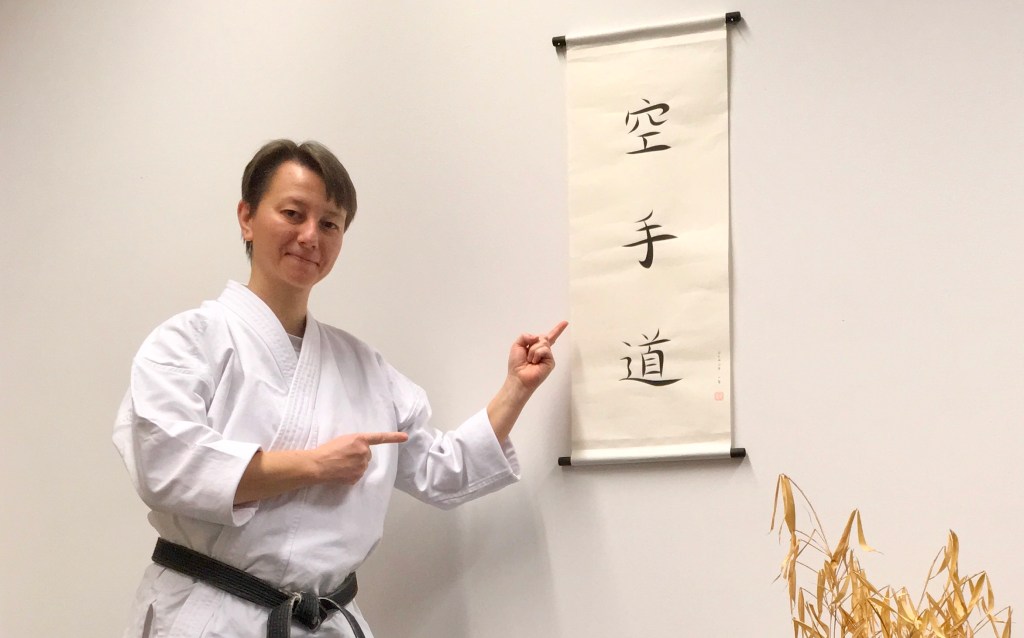 空
手
道